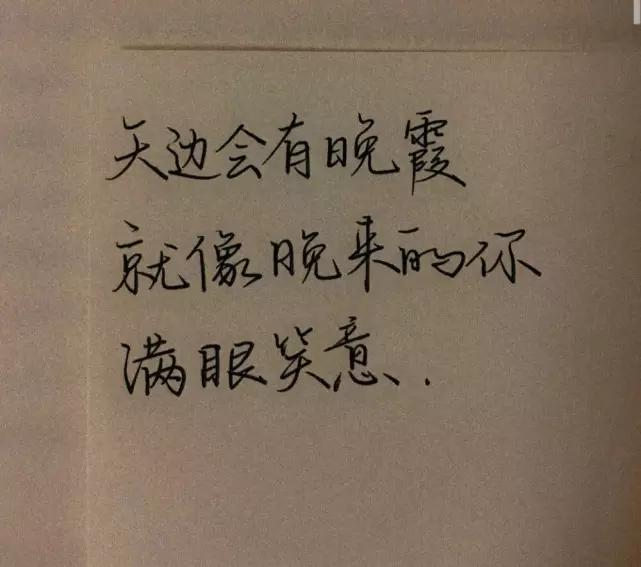 天边会有晚霞
就像晚来的你
满眼笑意.